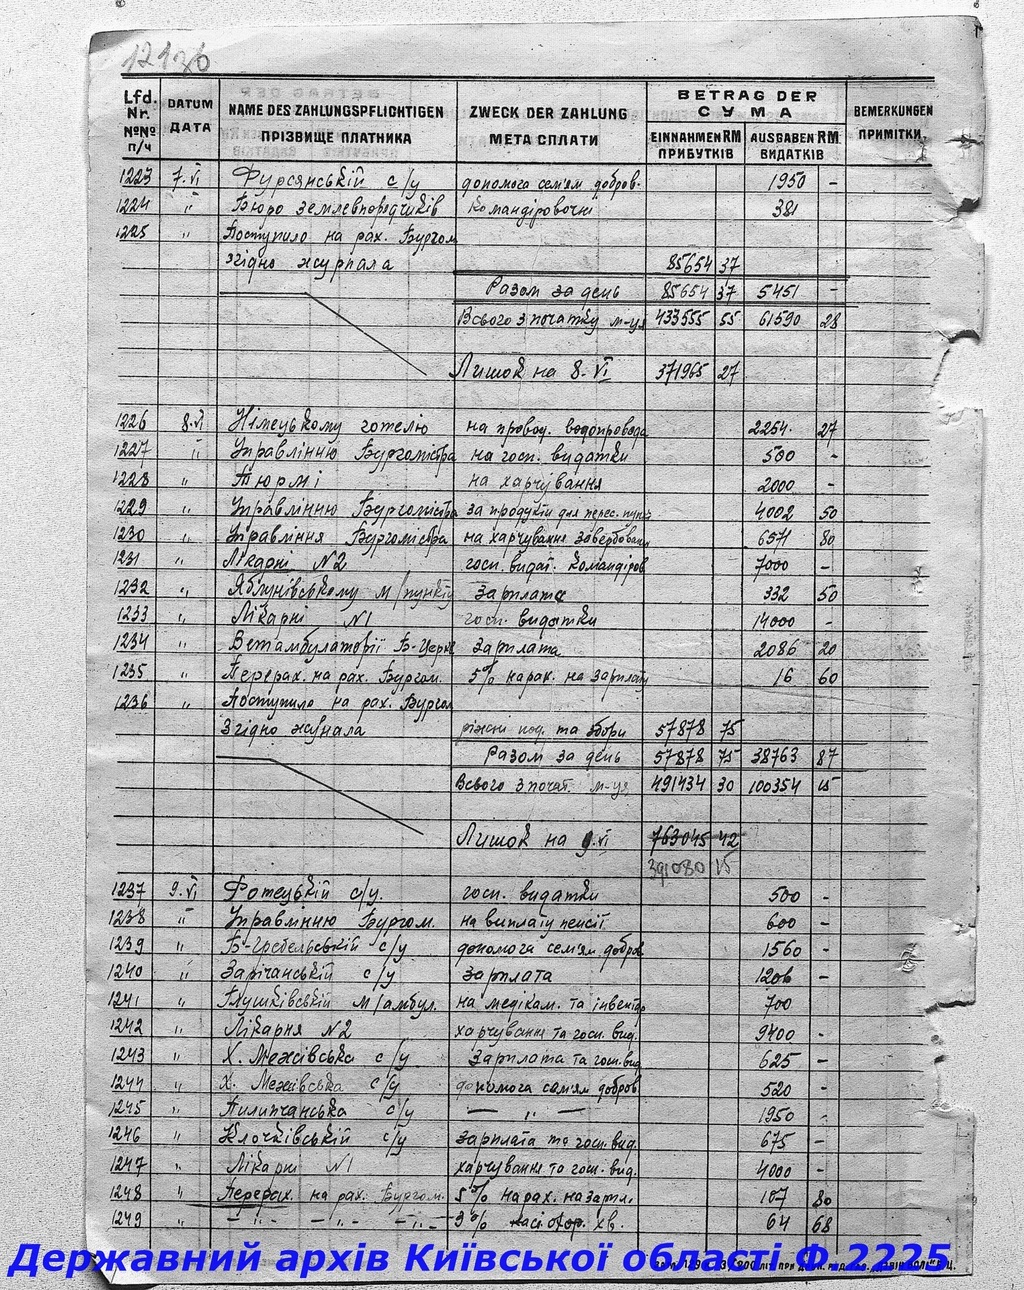 12136
Lfd. Nr. №№ п/ч DATUM ДАТА NAME DES ZAHLUNGSPFLICHTIGEN ПРІЗВИЩЕ ПЛАТНИКА ZWECK DER ZAHLUNG МЕТА СПЛАТИ BETRAG DER СУМА EINNAHMEN RM ПРИБУТКІВ AUSGABEN RM ВИДАТКІВ BEMERKUNGEN ПРИМІТКИ
1223 7.VI Фурсянській с/у допомога сем'ям добров. 1950 -
1224 " Бюро землевпорядчиків командіровочні 381
1225 " Поступило на рах. Бургом.
згідно журнала 85654 37
Разом за день 85654 37 5451 -
Всього з початку м-ця 433555 55 61590 28
Лишок на 8.VI 371965 27
1226 8.VI Німецькому готелю на провод. водопровода 2254 27
1227 " Управлінню Бургомістра на госп. видатки 500 -
1228 " Тюрмі на харчування 2000 -
1229 " Управлінню Бургомістра за продукти для перес. пункт 4002 50
1230 " Управління Бургомістра на харчування завербовани 6571 80
1231 " Лікарні N2 госп. видат. командіров 7000 -
1232 " Яблунівському м/пункту зарплата 332 50
1233 " Лікарні N1 госп. видатки 14000 -
1234 " Ветамбулаторії Б-Церкв зарплата 2086 20
1235 " Перерах. на рах. Бургом. 5% нарах. на зарплату 16 60
1236 " Поступило на рах. Бургом
згідно журнала ріжні под. та збори 57878 75
Разом за день 57878 75 38763 87
Всього з почат. м-ця 491434 30 100354 15
Лишок на 9.VI 763045 42
391080 15
1237 9.VI Фотецькій с/у. госп. видатки 500 -
1238 " Управлінню Бургом. на виплату пенсії 600 -
1239 " Б-Гребельській с/у допомога сем'ям добров 1560 -
1240 " Зарічанській с/у зарплата 1206 -
1241 " Глушківській м/амбул. на медікам. та інвентар 700
1242 " Лікарня N2 харчування та госп. вид. 9400 -
1243 " Х. Межівська с/у зарплата та госп. вид 625 -
1244 " Х. Межівська с/у допомога сем'ям добров 520 -
1245 " Пилипчанська с/у — " — 1950 -
1246 " Клочківській с/у зарплата та госп. вид. 675 -
1247 " Лікарні N1 харчування та госп. вид. 4000 -
1248 " Перерах. на рах. Бургом. 5% нарах. на зарпл. 107 80
1249 " - " - - " - - " - 3% хв. 64 68
Державний архів Київської області Ф.2225